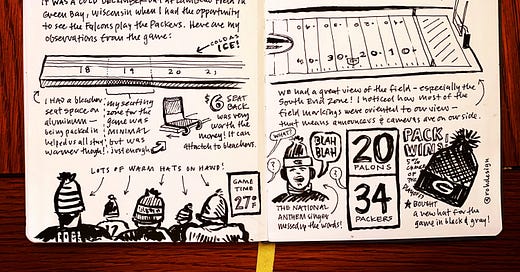 IT WAS A COLD DECEMBER DAY at LAMBEAU Field IN
Green Bay, Wisconsin when I had the opportunity
to see the Falcons play the Packers. Here are my
observations from the game:
COLD AS
ICE!
18 19 20 21
I HAD a bleacher
seat space on
aluminum —
being packed in
helped us all stay
warmer though!
My seating
zone for the
game was
MINIMAL
but was
just enough
$6 SEAT
BACK
was very
worth the
money! It can
attach to bleachers.
LOTS OF WARM HATS ON HAND!
GAME
TIME
27°
10 20 30 20 10
WE HAD a great view of the field - especially the
South End Zone! I noticed how most of the
field markings were oriented to our view —
that means announcers & cameras are on our side.
WHAT?
BLAH
BLAH
?
THE NATIONAL
ANTHEM singer
messed up the words!
20
FALCONS
34
PACKERS
PACK
WINS!
G
BOUGHT
a new hat for the
game in black & gray!
@rohdesign